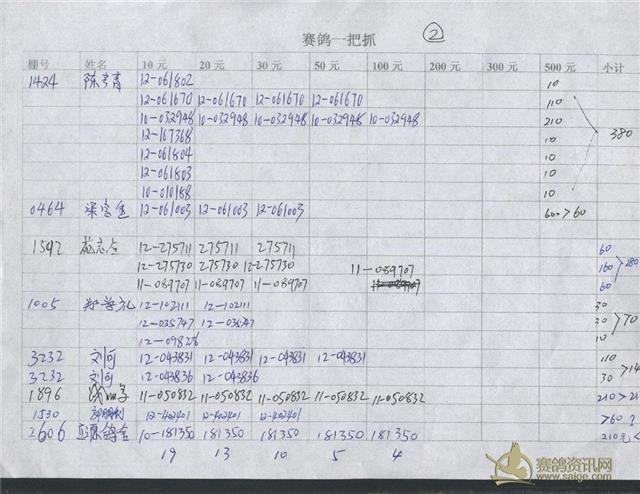 赛鸽一把抓 ②
棚号 姓名 10元 20元 30元 50元 100元 200元 300元 500元 小计
1424 陈 青 12-061802 10
12-061670 12-061670 12-061670 12-061670 110
10-032948 10-032948 10-032948 10-032948 10-032948 210 380
12-167368 10
12-061804 10
12-061803 10
10-010188 10
0464 梁 12-061003 12-061003 12-061003 60 > 60
1592 12-275711 275711 275711 60
12-275730 275730 12-275730 11-089707 160 > 280
11-089707 11-089707 11-089707 60
1005 郑学礼 12-102111 12-102111 30
12-035747 12-035747 30 > 70
12-09826 10
3232 刘可 12-043831 12-043831 12-043831 12-043831 110
3232 刘可 12-043836 12-043836 30 > 14
1896 11-050832 11-050832 11-050832 11-050832 11-050832 210 > 21
1530 12-402401 12-402401 12-402401 > 60
2606 鸽舍 10-181350 181350 181350 181350 181350 210元
19 13 10 5 4
赛鸽资讯网
www.saige.com